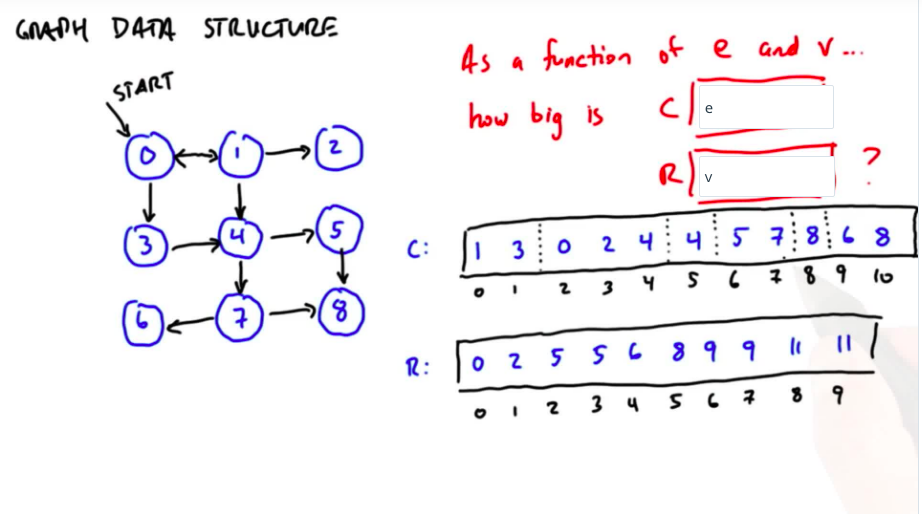 GRAPH DATA STRUCTURE
START
0 1 2
3 4 5
6 7 8
As a function of e and v...
how big is C e
R v ?
C: 1 3 0 2 4 4 5 7 8 6 8
0 1 2 3 4 5 6 7 8 9 10
R: 0 2 5 5 6 8 9 9 11 11
0 1 2 3 4 5 6 7 8 9